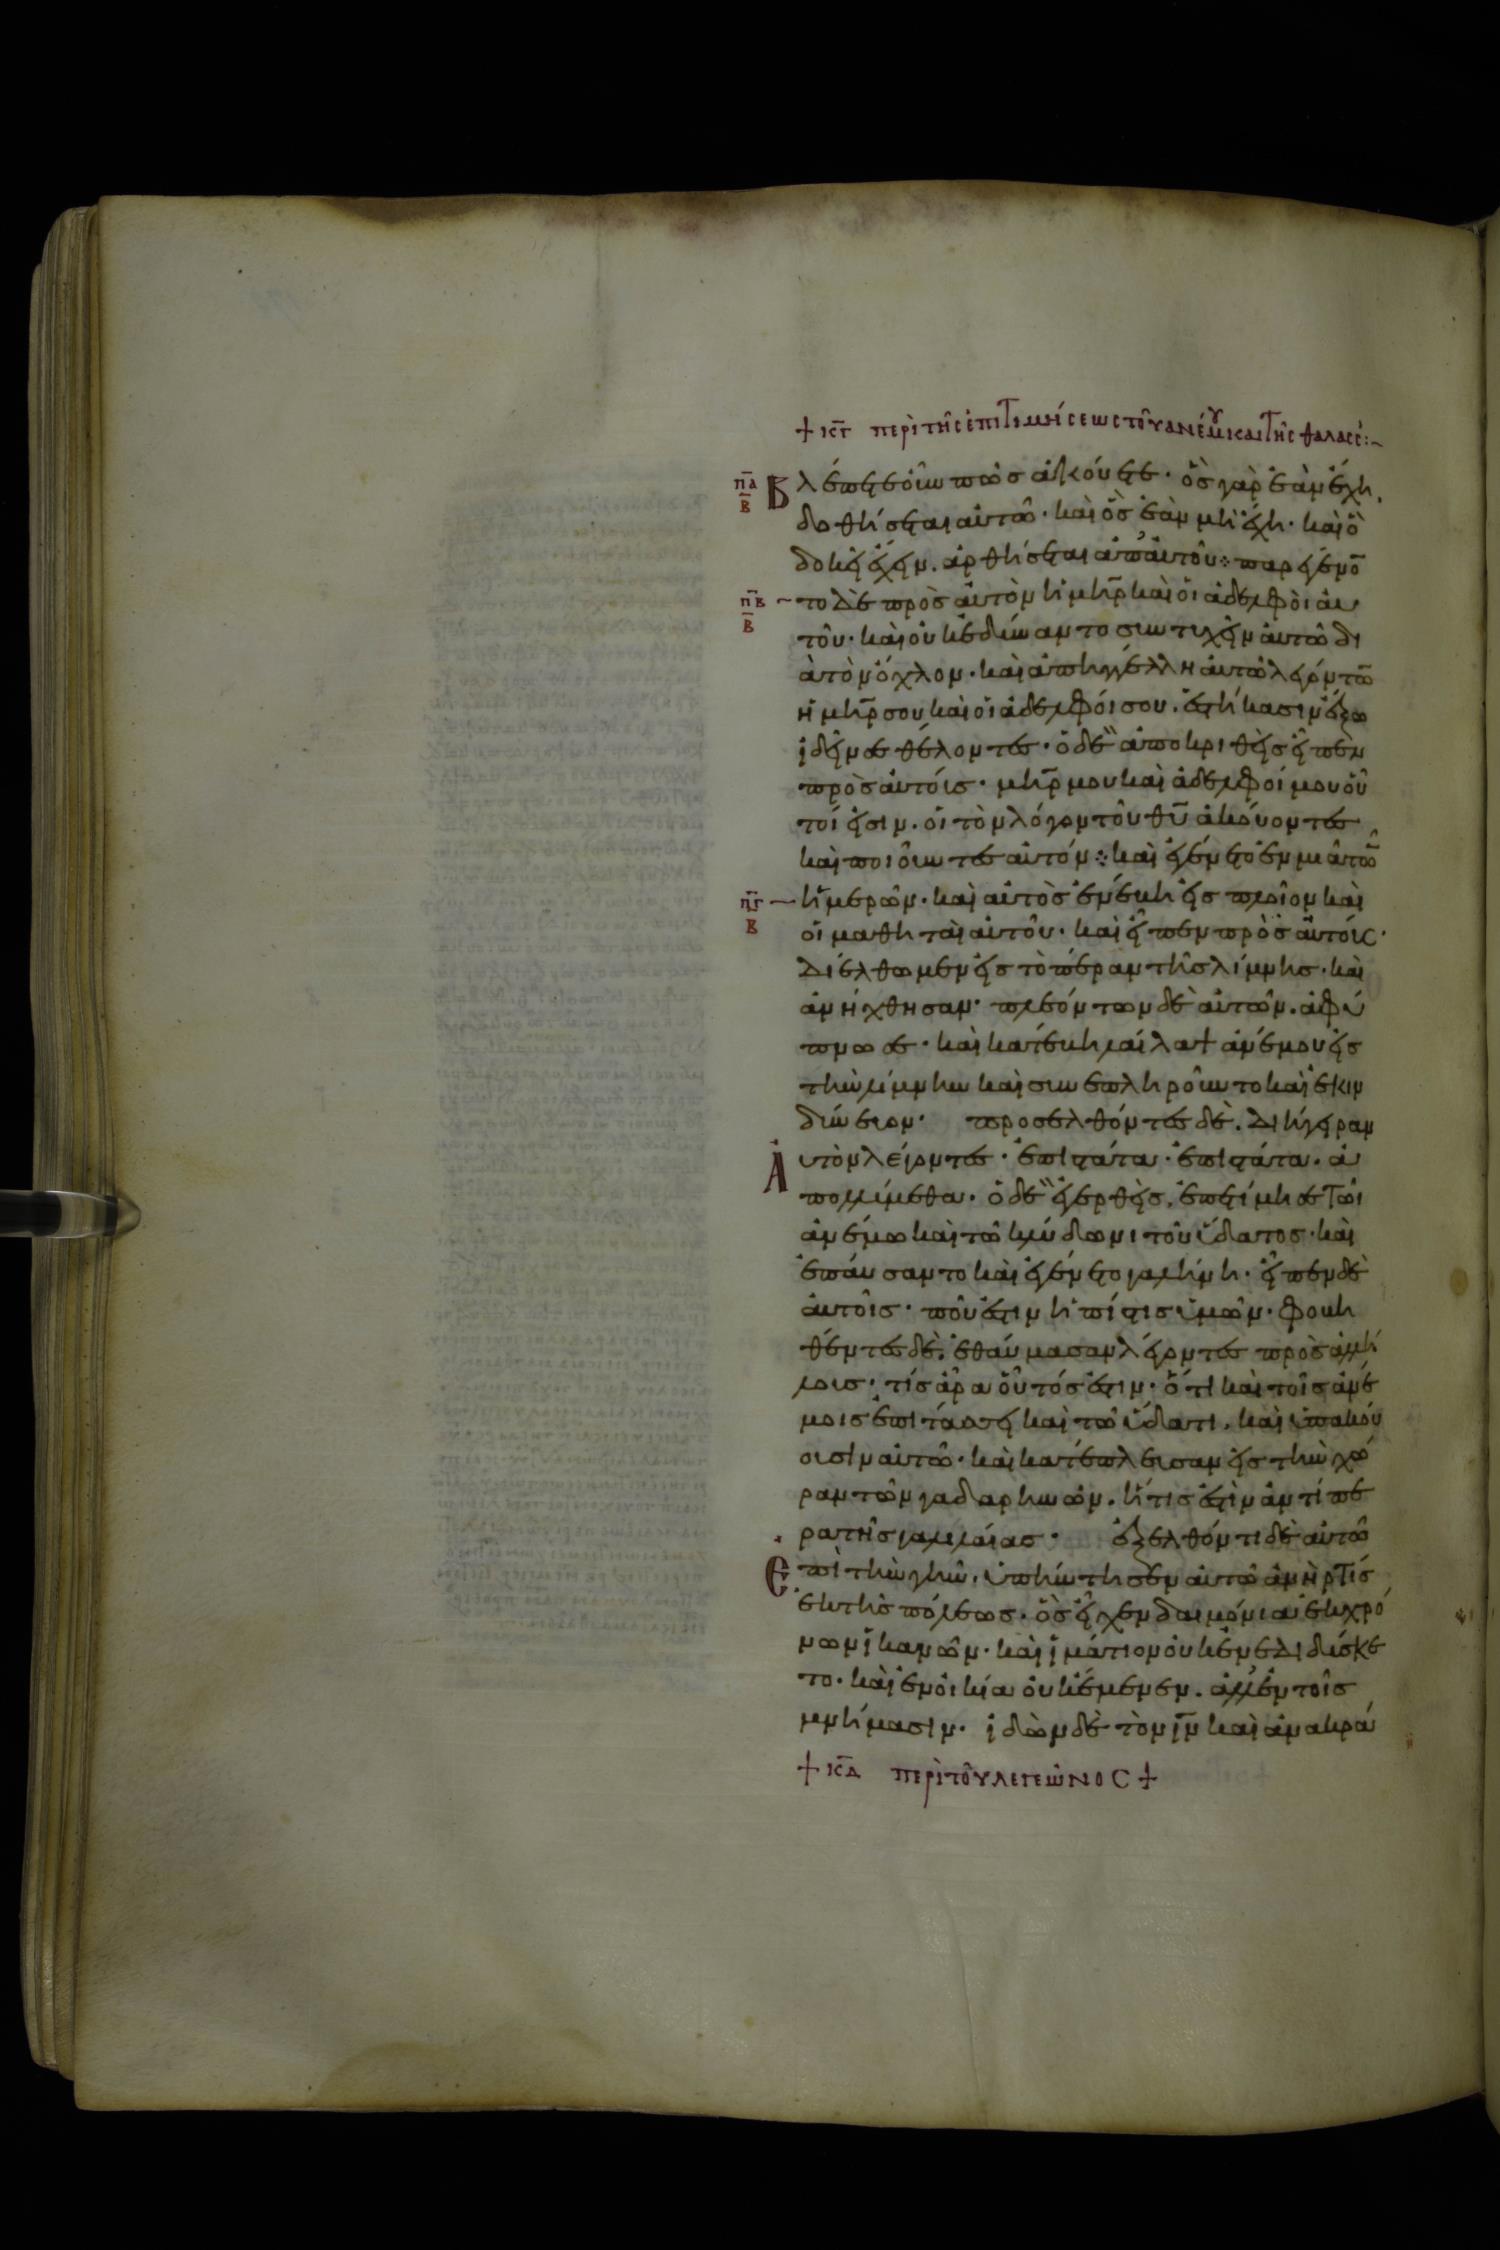 + κγ περὶ τῆς ἐπιτιμήσεως τοῦ ἀνέμου καὶ τῆς θαλάσσ:~
πα
β
Βλέπετε οὖν πῶς ἀκούετε· ὃς γὰρ ἐὰν ἔχη,
δοθήσεται αὐτῶ· καὶ ὃς ἐὰν μὴ ἔχη· καὶ ὃ
δοκεῖ ἔχειν. ἀρθήσεται ἀπ' αὐτοῦ: παρεγένο
πβ
β
το δὲ πρὸς αὐτὸν ἡ μηρ καὶ οἱ ἀδελφοὶ αὐ
τοῦ· καὶ οὐκ ἐδύναντο συντυχεῖν αὐτῶ δι
ὰ τὸν ὄχλον· καὶ ἀπηγγέλλη αὐτῶ λεγόντω
ἡ μηρ σου καὶ οἱ ἀδελφοί σου. ἑστήκασιν ἔξω
ἰδεῖν σε θέλοντες· ὁ δὲ ἀποκριθεὶς εἶπεν
πρὸς αὐτούς· μηρ μου καὶ ἀδελφοί μου οὗ
τοί εἰσιν. οἱ τὸν λόγον τοῦ θυ ἀκούοντες
καὶ ποιοῦντες αὐτόν: καὶ ἐγένετο ἐν μιᾶ τῶ
πγ
β
ἡμερῶν· καὶ αὐτὸς ἐνέβη εἰς πλοῖον καὶ
οἱ μαθηταὶ αὐτοῦ· καὶ εἶπεν πρὸς αὐτούς·
Διέλθωμεν εἰς τὸ πέραν τῆς λίμνης· καὶ
ἀνήχθησαν· πλεόντων δὲ αὐτῶν. ἀφύ
πνωσε· καὶ κατέβη λαῖλαψ ἀνέμου εἰς
τὴν λίμνην καὶ συνεπληροῦντο καὶ ἐκιν
δύνευον· προσελθόντες δὲ. Διήγειραν
Ἀυτὸν λέγοντες· ἐπιστάτα· ἐπιστάτα. ἀ
πολλύμεθα· ὁ δὲ ἐγερθεὶς. ἐπετίμησε τῶι
ἀνέμω καὶ τῶ κλύδωνι τοῦ ὕδατος· καὶ
ἐπαύσαντο καὶ ἐγένετο γαλήνη· εἶπεν δὲ
αὐτοῖς· ποῦ ἐστιν ἡ πίστις ὑμῶν· φοβη
θέντες δὲ. ἐθαύμασαν λέγοντες πρὸς ἀλλή
λους· τίς ἄρα οὗτός ἐστιν· ὅτι καὶ τοῖς ἀνέ
μοις ἐπιτάσσει καὶ τῶ ὕδατι. καὶ ὑπακού
ουσιν αὐτῶ· καὶ κατέπλευσαν εἰς τὴν χώ
ραν τῶν γαδαρηνῶν. ἥτις ἐστὶν ἀντίπε
ρα τῆς γαλιλαίας· ἐξελθόντι δὲ αὐτῶ
Ἐπὶ τὴν γῆν. ὑπήντησεν αὐτῶ ἀνήρ τίς
ἐκ τῆς πόλεως. ὃς εἶχεν δαιμόνια ἐκ χρό
νων ἱκανῶν· καὶ ἱμάτιον οὐκ ἐνεδιδύσκε
το· καὶ ἐν οἰκία οὐκ ἔμενεν. ἀλλ' ἐν τοῖς
μνήμασιν. ἰδὼν δὲ τὸν ιν καὶ ἀνακρά
+ κδ περὶ τοῦ λεγεῶνος +